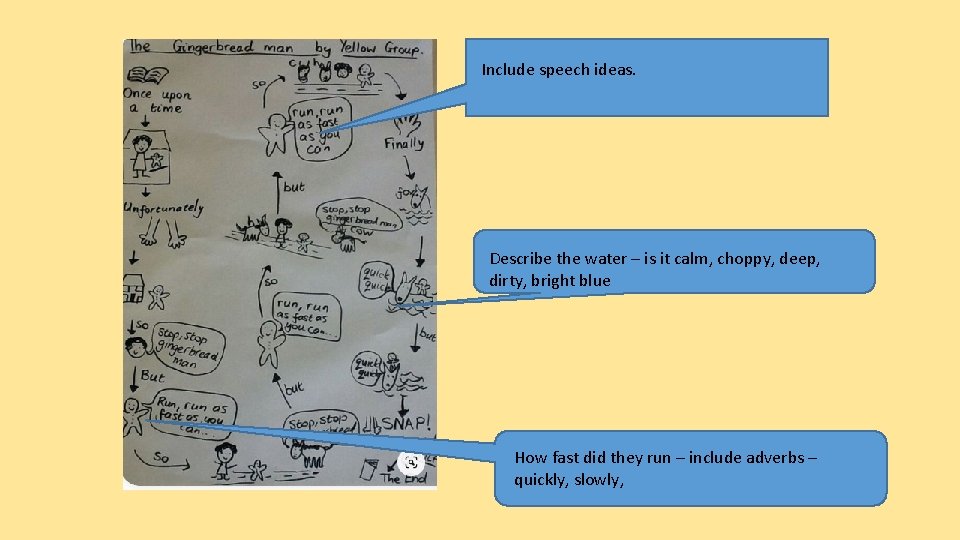 The Gingerbread man by Yellow Group.
Once upon
a time
Unfortunately
so
Stop, stop
gingerbread
man
But
Run, run as
fast as you
can...
so
Stop, stop
but
run, run
as fast as
you can...
so
stop, stop
gingerbread man
cow
but
run, run
as fast
as you
can
so
Finally
quick
quick
but
quick
quick
SNAP!
The End
Include speech ideas.
Describe the water – is it calm, choppy, deep,
dirty, bright blue
How fast did they run – include adverbs –
quickly, slowly,